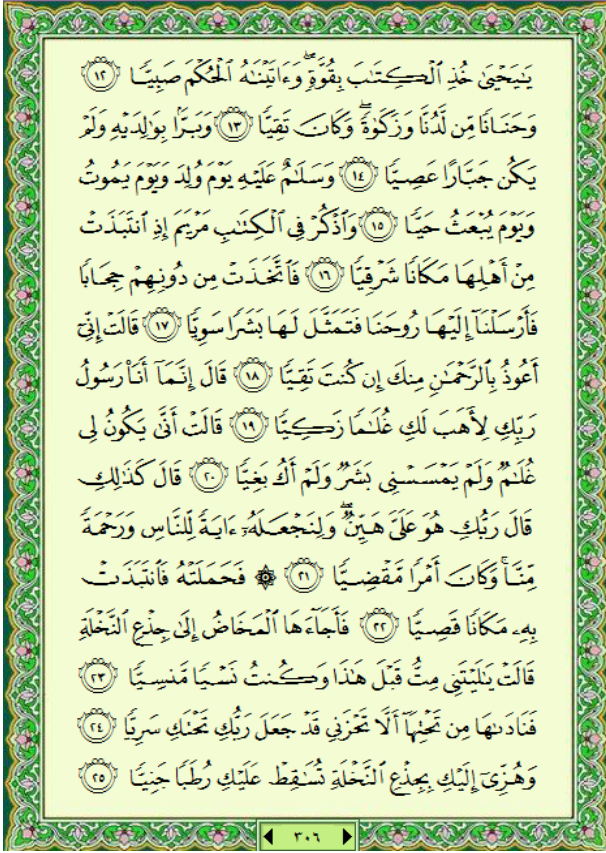 يَـٰيَحْيَىٰ خُذِ ٱلْكِتَـٰبَ بِقُوَّةٍۢ ۖ وَءَاتَيْنَـٰهُ ٱلْحُكْمَ صَبِيًّۭا ١٢
وَحَنَانًۭا مِّن لَّدُنَّا وَزَكَوٰةًۭ ۖ وَكَانَ تَقِيًّۭا ١٣ وَبَرًّۢا بِوَٰلِدَيْهِ وَلَمْ
يَكُن جَبَّارًا عَصِيًّۭا ١٤ وَسَلَـٰمٌ عَلَيْهِ يَوْمَ وُلِدَ وَيَوْمَ يَمُوتُ
وَيَوْمَ يُبْعَثُ حَيًّۭا ١٥ وَٱذْكُرْ فِى ٱلْكِتَـٰبِ مَرْيَمَ إِذِ ٱنتَبَذَتْ
مِنْ أَهْلِهَا مَكَانًۭا شَرْقِيًّۭا ١٦ فَٱتَّخَذَتْ مِن دُونِهِمْ حِجَابًۭا
فَأَرْسَلْنَآ إِلَيْهَا رُوحَنَا فَتَمَثَّلَ لَهَا بَشَرًۭا سَوِيًّۭا ١٧ قَالَتْ إِنِّىٓ
أَعُوذُ بِٱلرَّحْمَـٰنِ مِنكَ إِن كُنتَ تَقِيًّۭا ١٨ قَالَ إِنَّمَآ أَنَا۠ رَسُولُ
رَبِّكِ لِأَهَبَ لَكِ غُلَـٰمًۭا زَكِيًّۭا ١٩ قَالَتْ أَنَّىٰ يَكُونُ لِى
غُلَـٰمٌۭ وَلَمْ يَمْسَسْنِى بَشَرٌۭ وَلَمْ أَكُ بَغِيًّۭا ٢٠ قَالَ كَذَٰلِكِ
قَالَ رَبُّكِ هُوَ عَلَىَّ هَيِّنٌۭ ۖ وَلِنَجْعَلَهُۥٓ ءَايَةًۭ لِّلنَّاسِ وَرَحْمَةًۭ
مِّنَّا ۚ وَكَانَ أَمْرًۭا مَّقْضِيًّۭا ٢١ ۞ فَحَمَلَتْهُ فَٱنتَبَذَتْ
بِهِۦ مَكَانًۭا قَصِيًّۭا ٢٢ فَأَجَآءَهَا ٱلْمَخَاضُ إِلَىٰ جِذْعِ ٱلنَّخْلَةِ
قَالَتْ يَـٰلَيْتَنِى مِتُّ قَبْلَ هَـٰذَا وَكُنتُ نَسْيًۭا مَّنسِيًّۭا ٢٣
فَنَادَىٰهَا مِن تَحْتِهَآ أَلَّا تَحْزَنِى قَدْ جَعَلَ رَبُّكِ تَحْتَكِ سَرِيًّۭا ٢٤
وَهُزِّىٓ إِلَيْكِ بِجِذْعِ ٱلنَّخْلَةِ تُسَـٰقِطْ عَلَيْكِ رُطَبًۭا جَنِيًّۭا ٢٥
٣٠٦